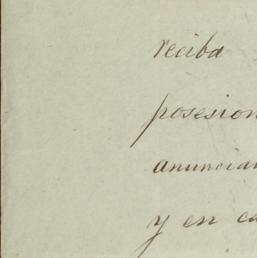 reciba
posesion
anuncian
y en ca